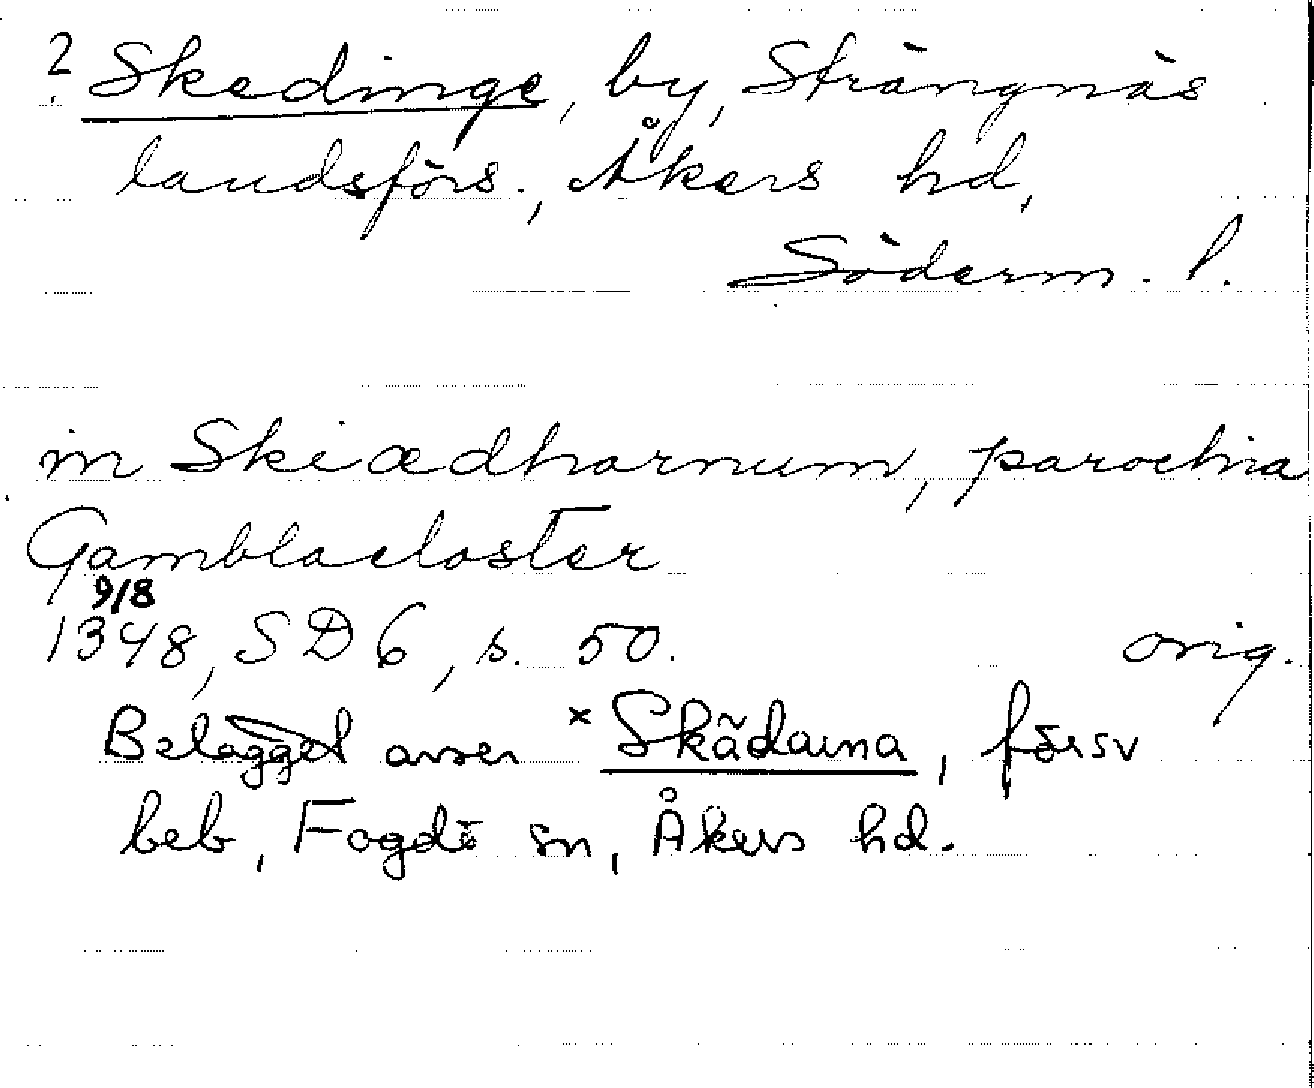 ? Skedinge, by, Strängnäs
landsförs., Åkers hd,
Söderm. l.
in Skiædharnum, parochia
Gamblacloster
9/8
1348, SD 6, s. 50. orig.
Belägget avser × Skädarna, försv
beb, Fogdö sn, Åkers hd.